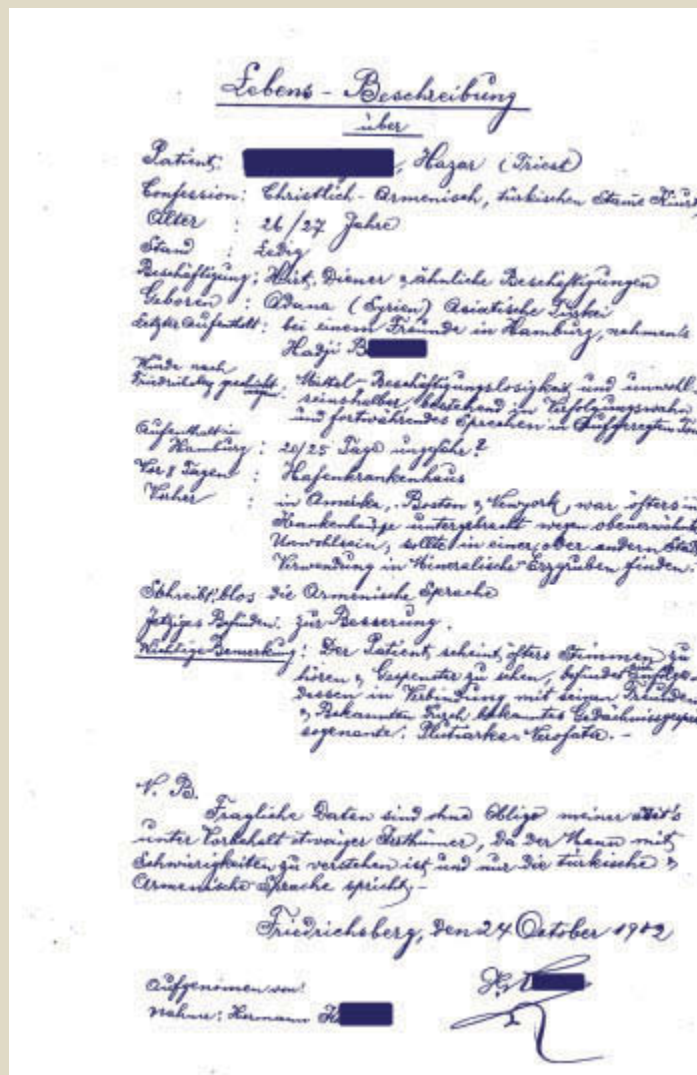 Lebens - Beschreibung
über
Patient: , Hazar (Triest)
Confession: Christlich-Armenisch, türkischen Stame Kurd
Alter : 26/27 Jahre
Stand : Ledig
Beschäftigung: Wirt, Diener & ähnliche Beschäftigungen
Geboren : Adana (Syrien) Asiatische Türkei
Letzter Aufenthalt: bei einem Freunde in Hamburg, nahmen's
Hadji B
Wurde nach
Friedrichsbg geschickt wegen: Mittel-Beschäftigungslosigkeit und unwoll-
seinshalber bestehend in Verfolgungswahn
und fortwährendes Sprechen in Aufgeregten Ton
Aufenthalt in
Hamburg : 20/25 Tage ungefähr?
Vor 8 Tagen : Hafenkrankenhaus
Vorher : in Amerika, Boston & Newyork, war öfters in
Krankenhause untergebracht wegen obenerwähn
Unwohlsein, sollte in einer oder andern Stad
Verwendung in Mineralische-Erzgruben finden.
Schreibt blos die Armenische Sprache
Jetziges Befinden: zur Besserung.
Wichtige Bemerkung: Der Patient scheint öfters Stimmen zu
hören & Gespenster zu sehen, befindet sich infolge-
dessen in Verbindung mit seinen Freunden
& Bekannten durch bekanntes
sogenante:
N. B.
Fragliche Daten sind ohne Obligo meiner seit's
unter Vorbehalt etwaiger Irrthümer, da der Mann mit
Schwierigkeiten zu verstehen ist und nur die türkische &
Armenische Sprache spricht,-
Friedrichsberg, den 24 October 1912
Aufgenomen von:
Nahme: Hermann